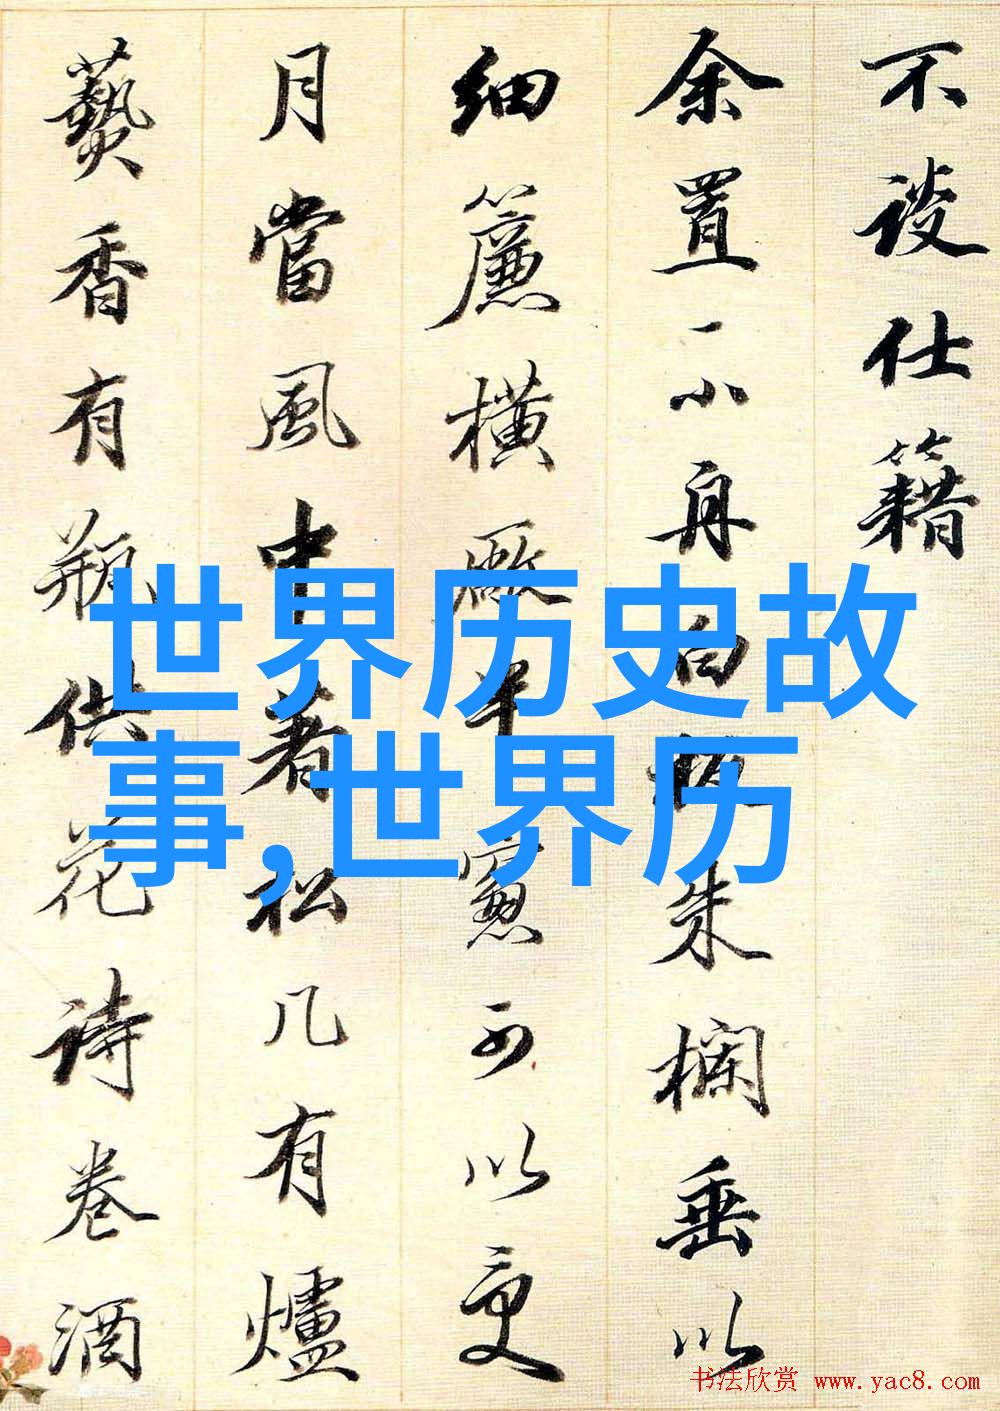 不談仕籍
余置一小舟白板朱欄垂以
細簾橫厰半窻可以受
月當風中著松几有爐
爇香有瓶供花詩卷酒
世界历史故
事,世界历
书法欣赏 www.yac8.com